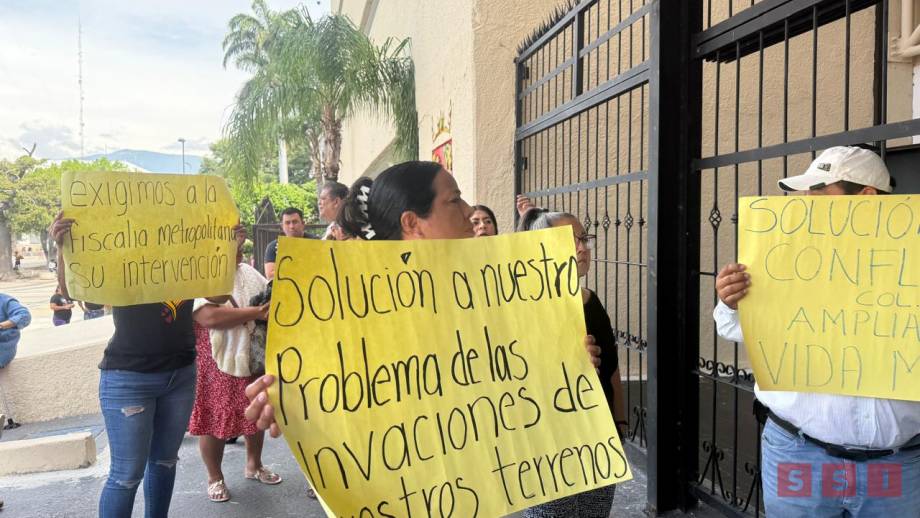 exigimos a la
Fiscalía Metropolitana
su intervención
Solución a nuestro
Problema de las
Invaciones de
nuestros terrenos
SOLUCIÓ
CONFL
COL
AMPLIA
VIDA M
SSI